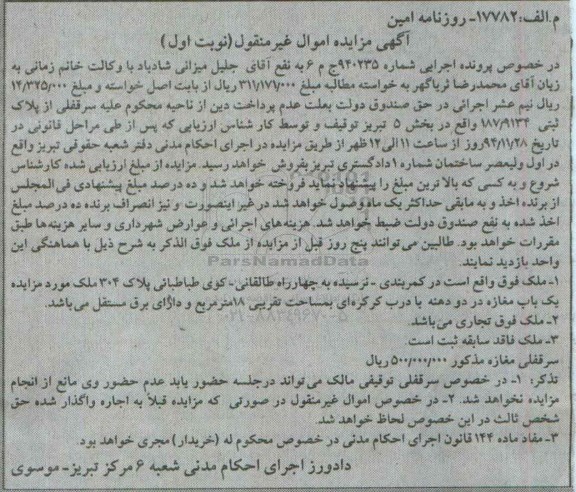 م.الف:۱۷۷۸۲- روزنامه امین
آگهی مزایده اموال غیرمنقول (نوبت اول)
در خصوص پرونده اجرایی شماره ۹۴۰۲۳۵ج م ۶ به نفع آقای جلیل میزانی شادباد با وکالت خانم زمانی به
زیان آقای محمدرضا ثریاگهر به خواسته مطالبه مبلغ ۳۱۱/۱۷۶/۰۰۰ ریال از بابت اصل خواسته و مبلغ ۱۲/۳۲۵/۰۰۰
ریال نیم عشر اجرائی در حق صندوق دولت بعلت عدم پرداخت دین از ناحیه محکوم علیه سرقفلی از پلاک
ثبتی ۱۸۷/۹۱۳۴ واقع در بخش ۵ تبریز توقیف و توسط کار شناس ارزیابی که پس از طی مراحل قانونی در
تاریخ ۹۴/۱۱/۲۸روز از ساعت ۱۱ الی۱۲ ظهر از طریق مزایده در اجرای احکام مدنی دفتر شعبه حقوقی تبریز واقع
در اول ولیعصر ساختمان شماره ۱ دادگستری تبریز بفروش خواهد رسید. مزایده از مبلغ ارزیابی شده کارشناس
شروع و به کسی که بالا ترین مبلغ را پیشنهاد نماید فروخته خواهد شد و ده درصد مبلغ پیشنهادی فی المجلس
از برنده اخذ و به مابقی حداکثر یک ماه وصول خواهد شد در غیر اینصورت و نیز انصراف برنده ده درصد مبلغ
اخذ شده به نفع صندوق دولت ضبط خواهد شد. هزینه‌های اجرائی و عوارض شهرداری و سایر هزینه‌ها طبق
مقررات خواهد بود. طالبین می‌توانند پنج روز قبل از مزایده از ملک فوق الذکر به شرح ذیل با هماهنگی این
واحد بازدید نمایند.
ParsNamadData
۱- ملک فوق واقع است در کمربندی - نرسیده به چهارراه طالقانی- کوی طباطبائی پلاک ۳۰۴ ملک مورد مزایده
یک باب مغازه در دو دهنه با درب کرکره‌ای بمساحت تقریبی ۱۸مترمربع و دارای برق مستقل می‌باشد.
۰۲۱-۸۸۳۴۹۶۷۰-۵
۲- ملک فوق تجاری می‌باشد.
۳- ملک فاقد سابقه ثبت است.
سرقفلی مغازه مذکور ۵۰۰/۰۰۰/۰۰۰ ریال
تذکر: ۱- در خصوص سرقفلی توقیفی مالک می‌تواند درجلسه حضور یابد عدم حضور وی مانع از انجام
مزایده نخواهد شد. ۲- در خصوص اموال غیرمنقول در صورتی که مزایده قبلاً به اجاره واگذار شده حق
شخص ثالث در این خصوص لحاظ خواهد شد.
۳- مفاد ماده ۱۴۴ قانون اجرای احکام مدنی در خصوص محکوم له (خریدار) مجری خواهد بود.
دادورز اجرای احکام مدنی شعبه ۶ مرکز تبریز- موسوی